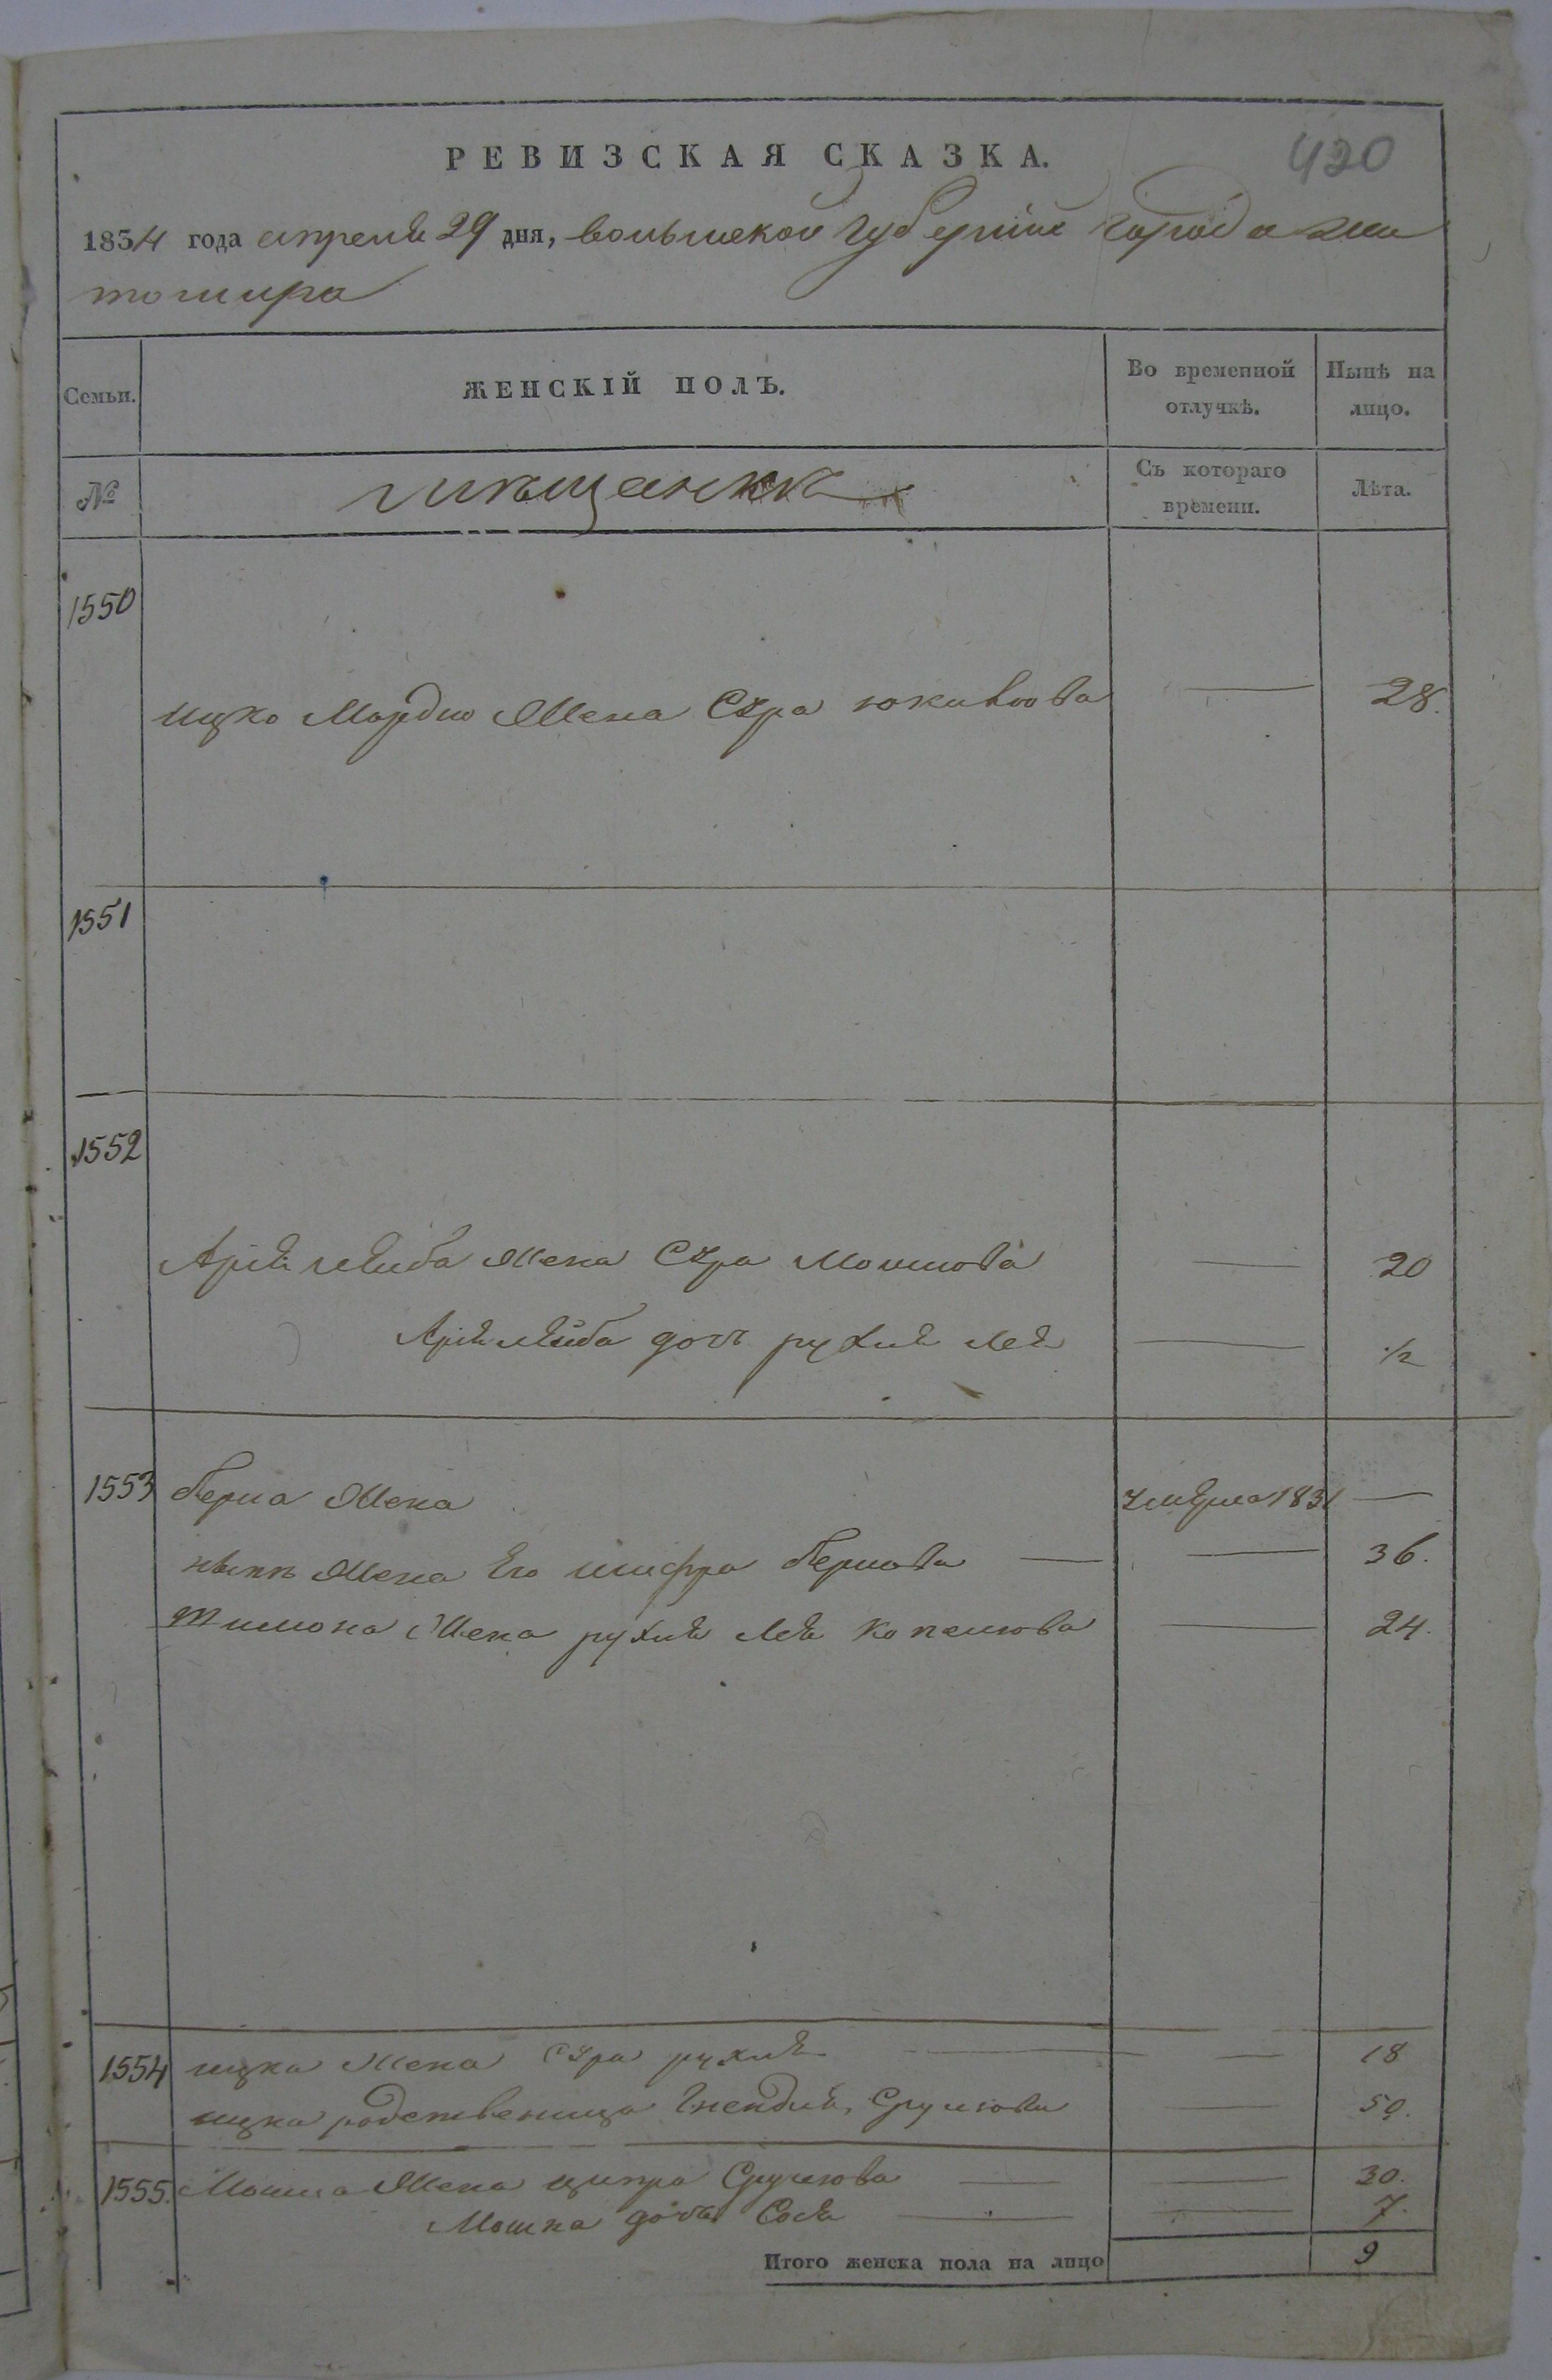 РЕВИЗСКАЯ СКАЗКА.
420
1834 года апреля 29 дня, волынской губернии города жи
томира
Семьи.
ЖЕНСКІЙ ПОЛЪ.
Во временной отлучкѣ.
Нынѣ на лицо.
№
мѣщанки
Съ котораго времени.
Лѣта.
1550
ицко Мордко Жена Сура — 28.
1551
1552
Арія лейба Жена Сура Мошкова — 20
Арія лейба дочь рухля Лея — ½
1553 берка Жена умерла 1831 —
нынѣ Жена Его шифра беркова — — 36.
Шимона Жена рухля Лея Копелюва — 24.
1554 ицка Жена Сура рухля — — 18
ицка родственица Гнендля Срулюва — 50.
1555. Мошка Жена ципра Срулюва — — 30.
Мошка дочь Сося — — 7.
Итого женска пола на лицо 9